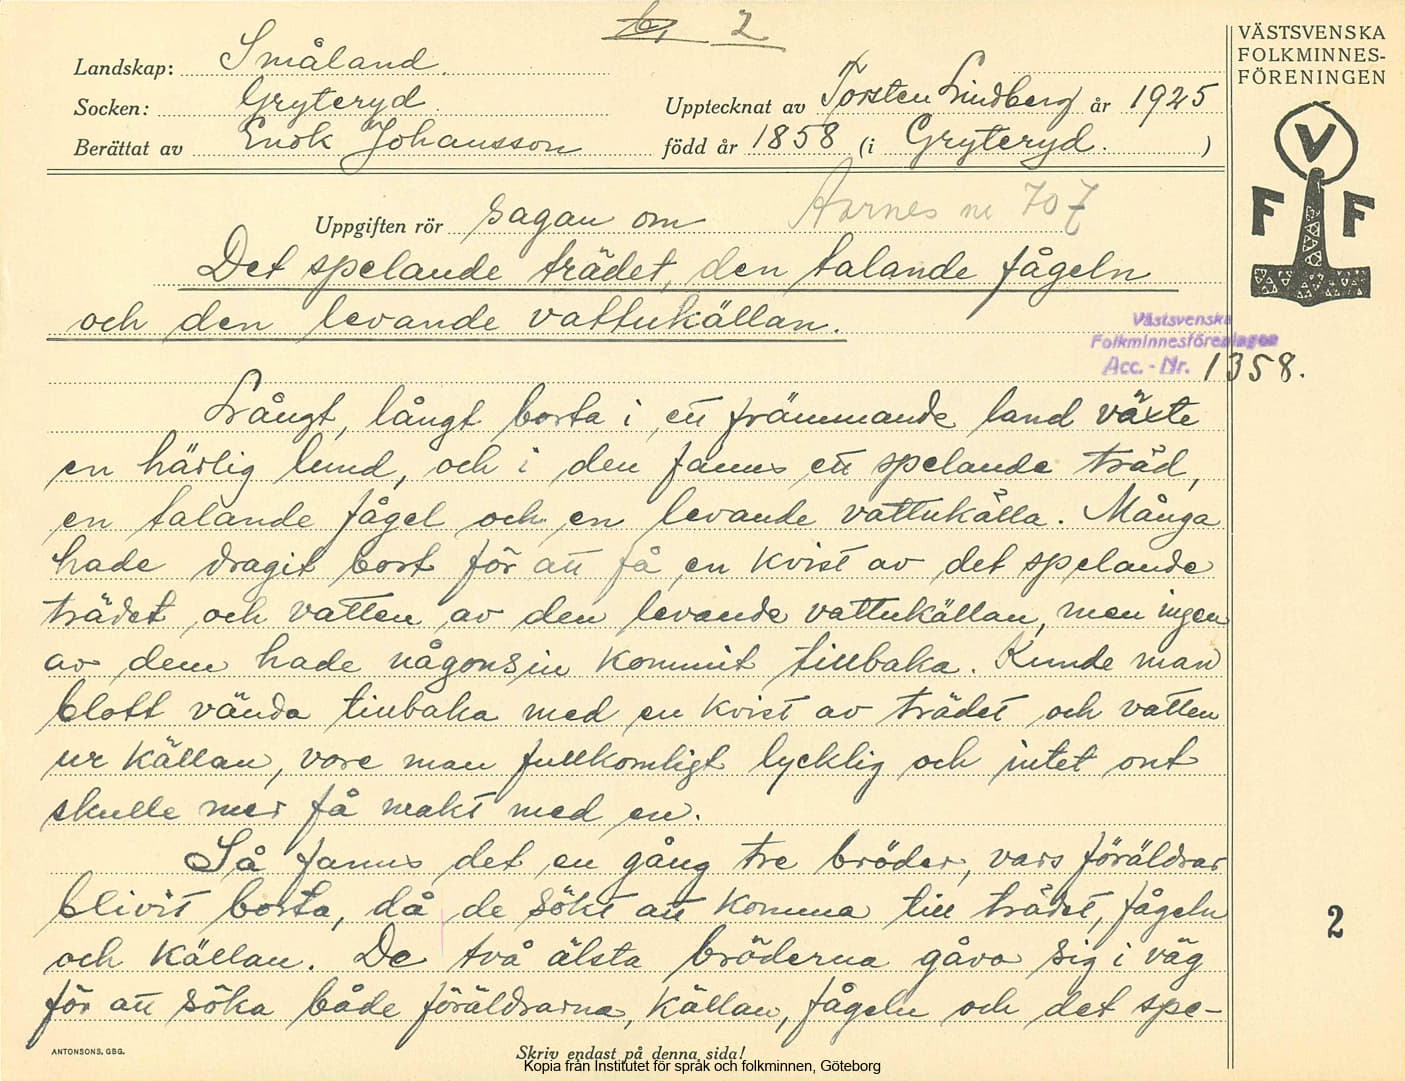 2
VÄSTSVENSKA
FOLKMINNES-
FÖRENINGEN
V
F F
Landskap: Småland.
Socken: Gryteryd.
Upptecknat av Torsten Lindberg år 1925
Berättat av Enok Johansson född år 1858 (i Gryteryd. )
Uppgiften rör sagan om Aarnes nr 707
Det spelande trädet, den talande fågeln
och den levande vattukällan.
Västsvenska
Folkminnesföreningen
Acc. - Nr. 1358.
Långt, långt borta i ett främmande land växte
en härlig lund, och i den fanns ett spelande träd,
en talande fågel och en levande vattukälla. Många
hade dragit bort för att få en kvist av det spelande
trädet och vatten av den levande vattukällan, men ingen
av dem hade någonsin kommit tillbaka. Kunde man
blott vända tillbaka med en kvist av trädet och vatten
ur källan, vore man fullkomligt lycklig och intet ont
skulle mer få makt med en.
Så fanns det en gång tre bröder, vars föräldrar
blivit borta, då de sökt att komma till trädet, fågeln
och källan. De två älsta bröderna gåvo sig i väg
för att söka både föräldrarna, källan, fågeln och det spe-
2
ANTONSONS, GBG.
Skriv endast på denna sida!
Kopia från Institutet för språk och folkminnen, Göteborg